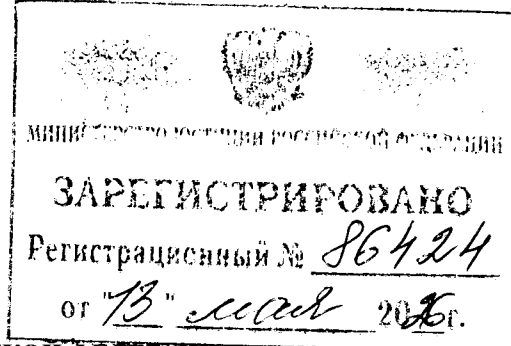 МИНИСТЕРСТВО ЮСТИЦИИ РОССИЙСКОЙ ФЕДЕРАЦИИ
ЗАРЕГИСТРИРОВАНО
Регистрационный № 86424
от "13" мая 2026г.